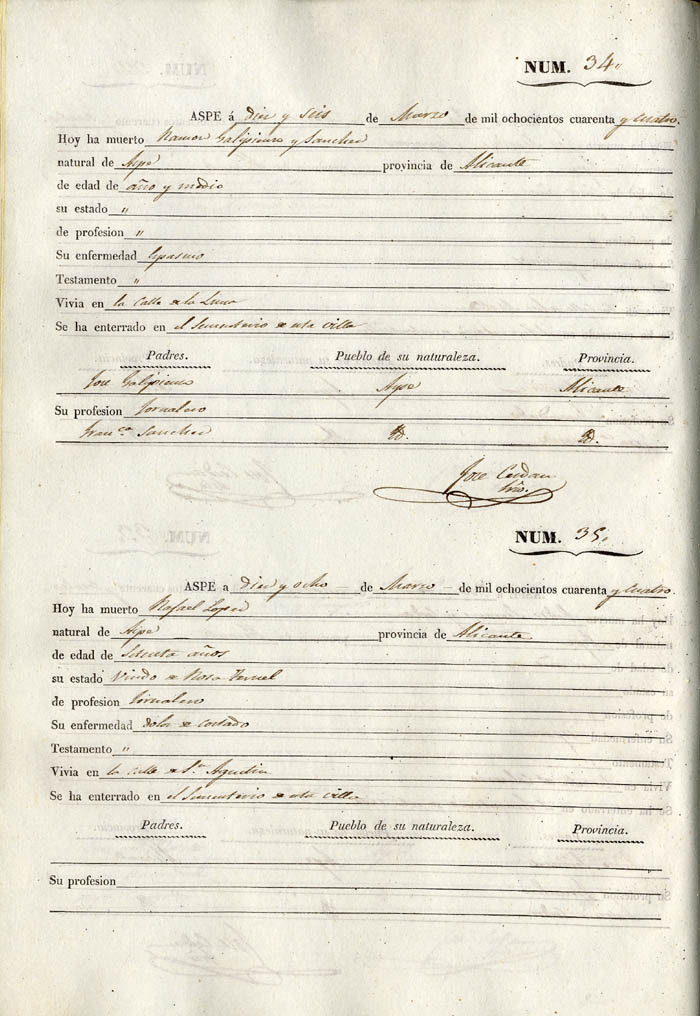 NUM. 34.
ASPE á diez y seis de Marzo de mil ochocientos cuarenta y cuatro.
Hoy ha muerto Ramon Galipienso y Sanchez
natural de Aspe provincia de Alicante
de edad de año y medio
su estado "
de profesion "
Su enfermedad Espasmo
Testamento "
Vivia en la Calle de la Luna
Se ha enterrado en el Sementerio de esta Villa
Padres. Pueblo de su naturaleza. Provincia.
Jose Galipienso Aspe Alicante
Su profesion Jornalero
Franca. Sanchez Id. Id.
Jose Cerdan
Srio.
NUM. 35.
ASPE a diez y ocho de Marzo de mil ochocientos cuarenta y cuatro.
Hoy ha muerto Rafael Lopez
natural de Aspe provincia de Alicante
de edad de años
su estado Viudo de Rosa Teruel
de profesion Jornalero
Su enfermedad dolor de costado
Testamento "
Vivia en la Calle de Sn. Agustin
Se ha enterrado en el Sementerio de esta Villa
Padres. Pueblo de su naturaleza. Provincia.
Su profesion